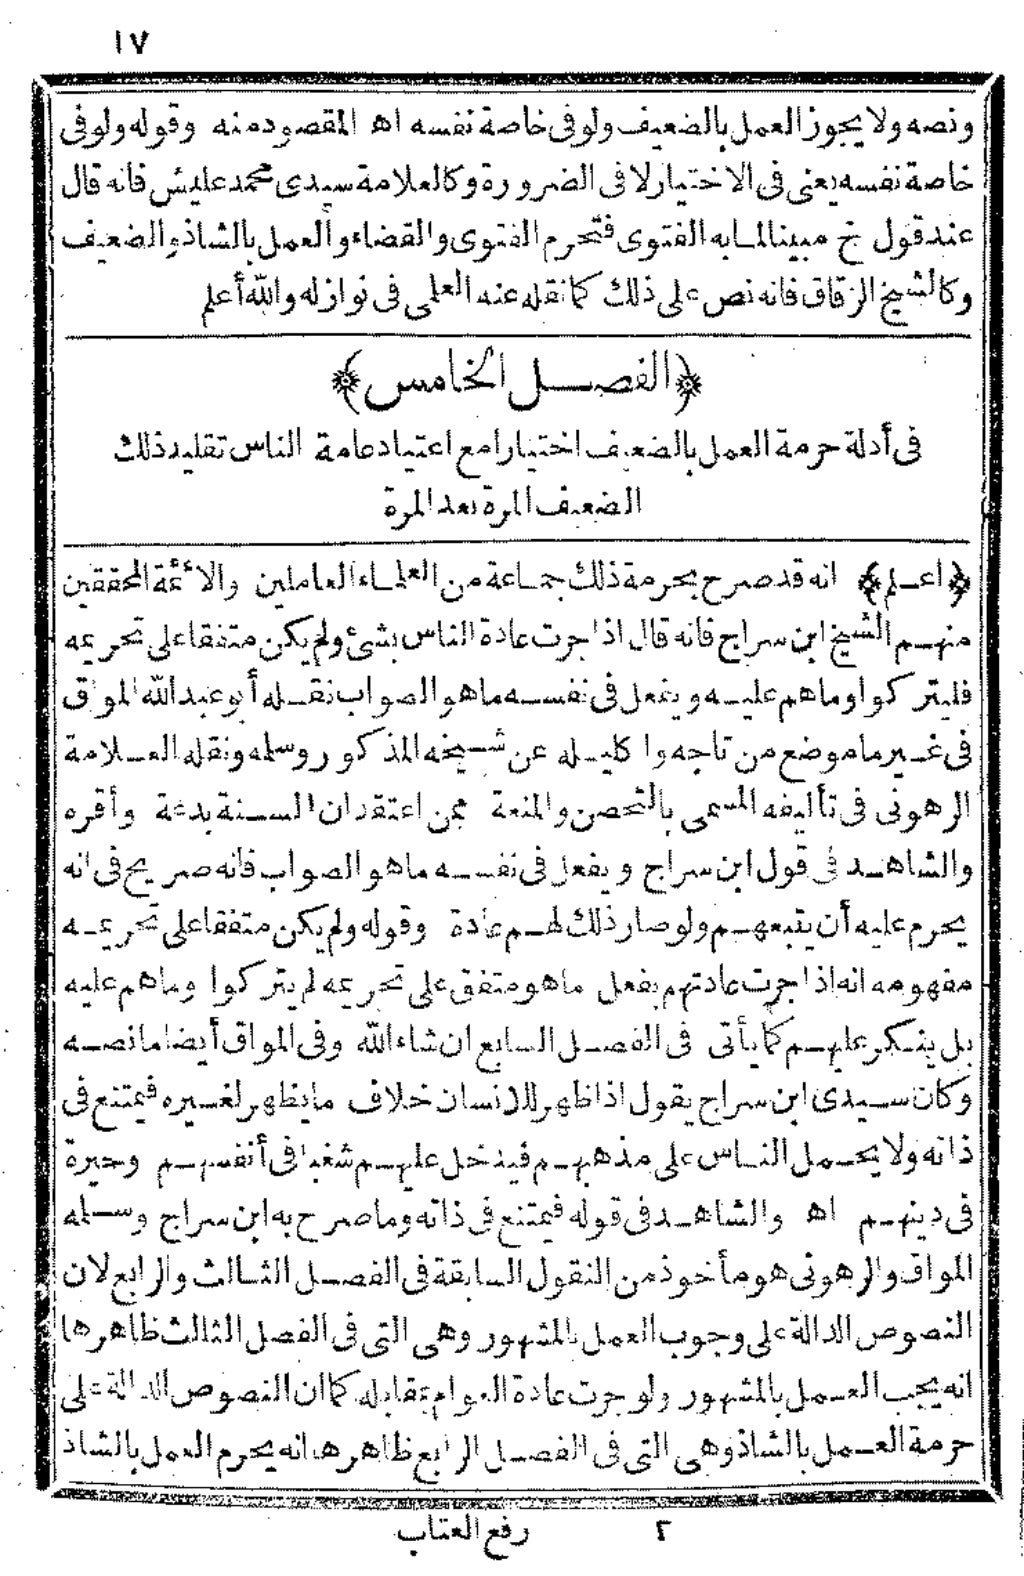 ١٧
ونصه ولا يجوز العمل بالضعيف ولو فى خاصة نفسه اه المقصود منه وقوله ولو فى
خاصة نفسه يعنى فى الاختيار لا فى الضرورة وكالعلامة سيدى محمد عليش فانه قال
عند قول خ مبينا لما به الفتوى فتحرم الفتوى والقضاء والعمل بالشاذ والضعيف
وكالشيخ الزقاق فانه نص على ذلك كما نقله عنه العلمى فى نوازله والله أعلم
﴿الفصل الخامس﴾
فى أدلة حرمة العمل بالضعيف اختيارا مع اعتياد عامة الناس تقليد ذلك
الضعيف المرة بعد المرة
﴿اعلم﴾ انه قد صرح بحرمة ذلك جماعة من العلماء العاملين والائمة المحققين
منهم الشيخ ابن سراج فانه قال اذا جرت عادة الناس بشئ ولم يكن متفقا على تحريمه
فليتركوا وما هم عليه ويفعل فى نفسه ما هو الصواب نقله أبو عبد الله المواق
فى غير ما موضع من تاجه واكليله عن شيخه المذكور وسلمه ونقله العلامة
الرهونى فى تأليفه المسمى بالتحصن والمنعة ممن اعتقد ان السنة بدعة وأقره
والشاهد فى قول ابن سراج ويفعل فى نفسه ما هو الصواب فانه صريح فى انه
يحرم عليه أن يتبعهم ولو صار ذلك لهم عادة وقوله ولم يكن متفقا على تحريمه
مفهومه انه اذا جرت عادتهم بفعل ما هو متفق على تحريمه لم يتركوا وما هم عليه
بل ينكر عليهم كما يأتى فى الفصل السابع ان شاء الله وفى المواق أيضا ما نصه
وكان سيدى ابن سراج يقول اذا ظهر للانسان خلاف ما يظهر لغيره فيمتنع فى
ذاته ولا يحمل الناس على مذهبهم فيدخل عليهم شغبا فى أنفسهم وحيرة
فى دينهم اه والشاهد فى قوله فيمتنع فى ذاته وما صرح به ابن سراج وسلمه
المواق والرهونى هو مأخوذ من النقول السابقة فى الفصل الثالث والرابع لان
النصوص الدالة على وجوب العمل بالمشهور وهى التى فى الفصل الثالث ظاهرها
انه يجب العمل بالمشهور ولو جرت عادة العوام بمقابله كما ان النصوص الدالة على
حرمة العمل بالشاذ وهى التى فى الفصل الرابع ظاهرها انه يحرم العمل بالشاذ
٢ رفع العتاب